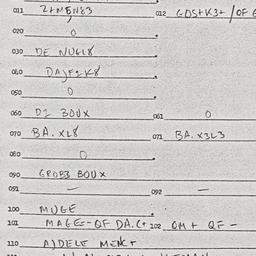 011 Z+MEN83 012 GOS+K3+/OF
020 0
030 DE NUGL8
040 DAJFIK8
050 0
060 DI BOUX 061 0
070 BA.XL8 071 BA.X3L3
080 0
090 GROB3 BOUX
091 — 092 —
100 MUGE
101 MAGEE-QF DA.C+ 102 OM+ QF-
110 AJDELE MENC+